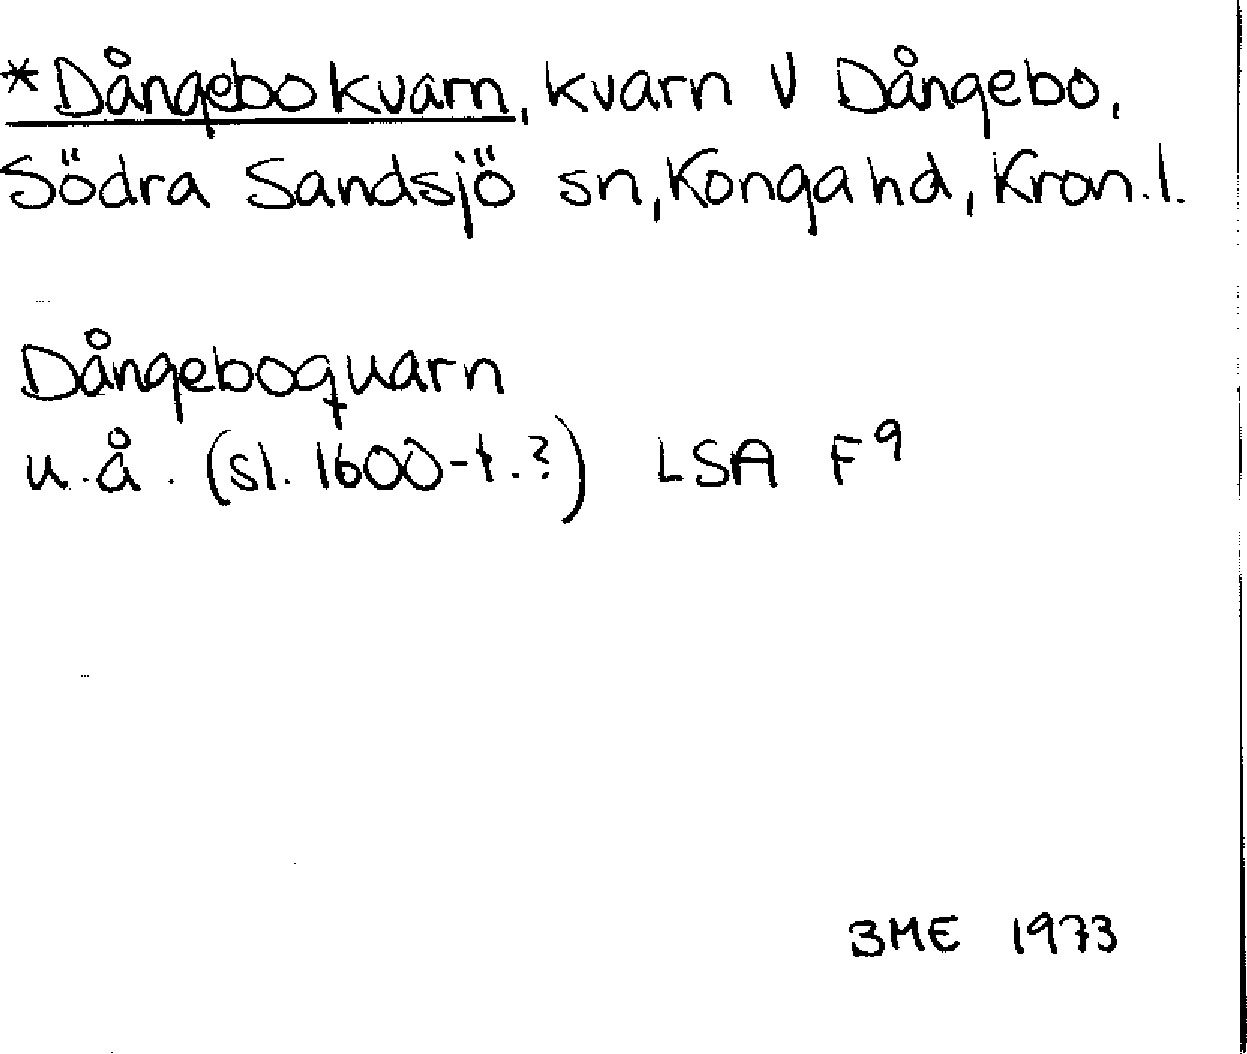 *Dångebo kvarn, kvarn V Dångebo,
Södra Sandsjö sn, Konga hd, Kron. l.
Dångeboquarn
u.å. (sl. 1600-t.?) LSA F9
BME 1973